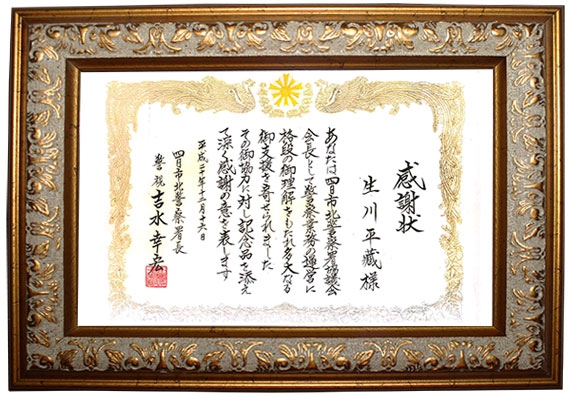 感謝状
生川平蔵様
あなたは四日市北警察署協議会
会長として警察業務の運営に
格段の御理解をもたれ多大なる
御支援を寄せられました
その御協力に対し記念品を添え
て深く感謝の意を表します
平成二十年十二月十六日
四日市北警察署長
警視 吉水幸宏